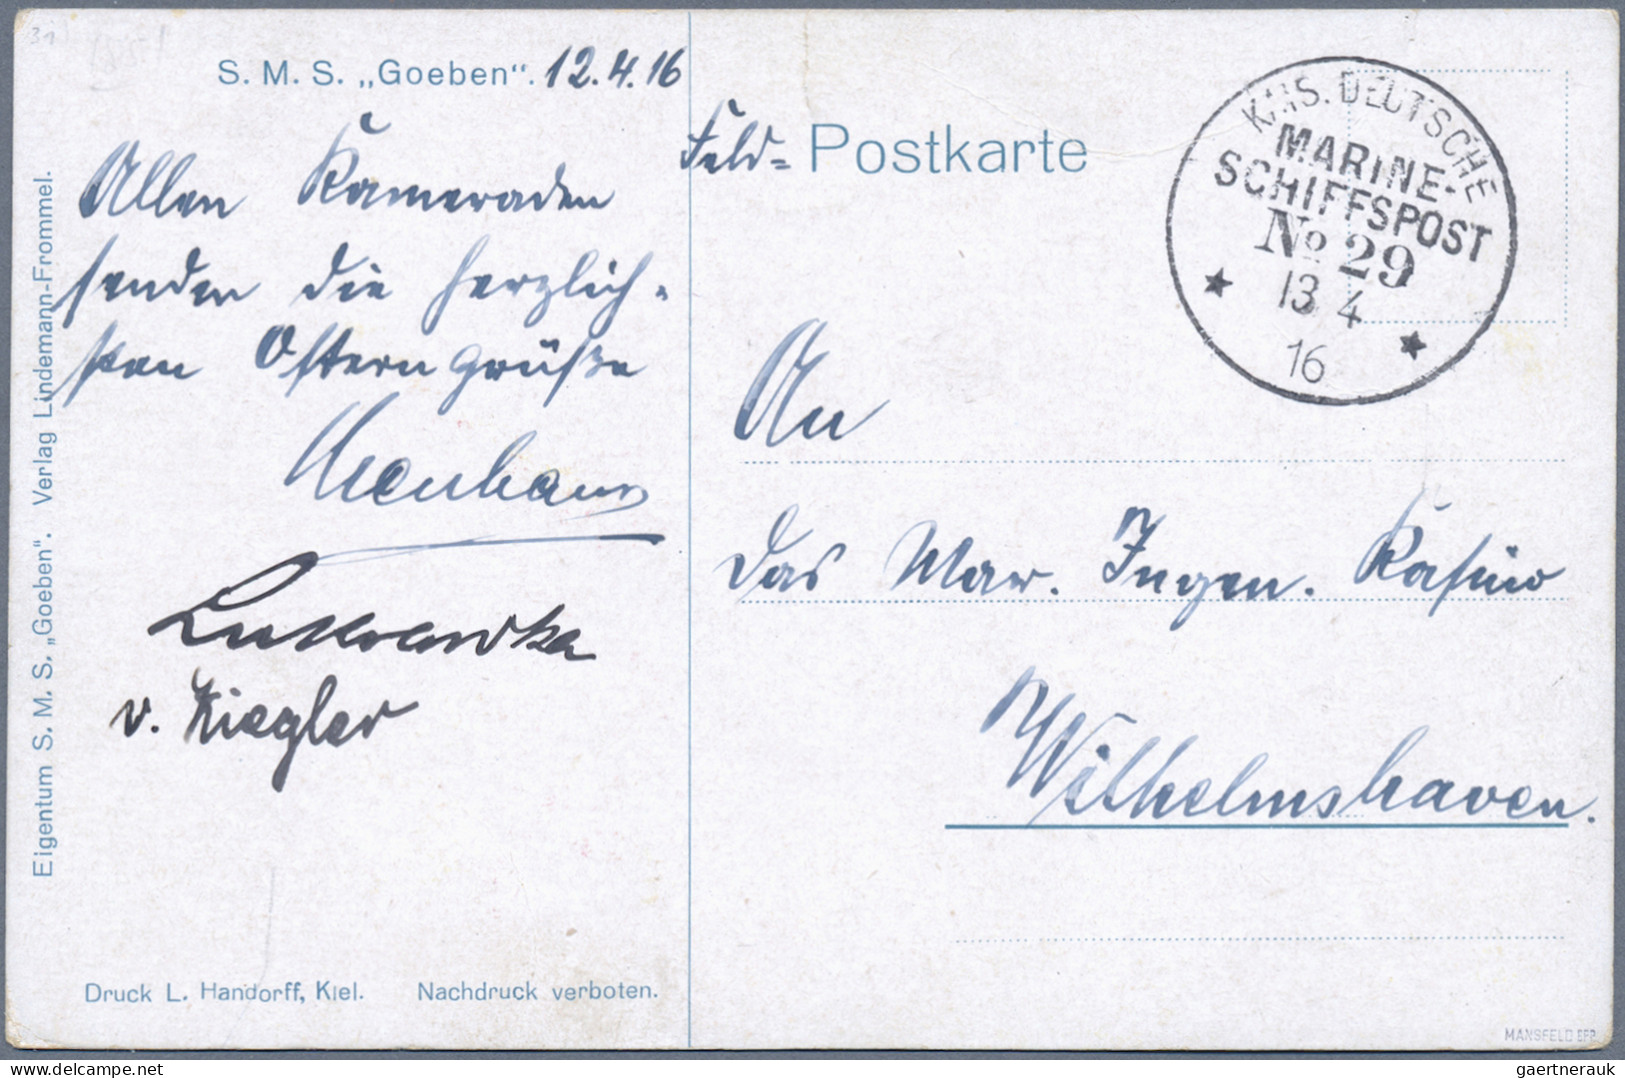 31
S. M. S. „Goeben". 12.4.16
Allen Kameraden
senden die herzlich-
sten Ostern grüße
v. Kiegler
Eigentum S. M. S. „Goeben". Verlag Lindemann-Frommel.
Druck L. Handorff, Kiel. Nachdruck verboten.
Feld= Postkarte
KAIS. DEUTSCHE
MARINE-
SCHIFFSPOST
No 29
13 4
16
An
Das Mar. Ingen. Kasino
Wilhelmshaven.
MANSFELD BPP
gaertnerauk